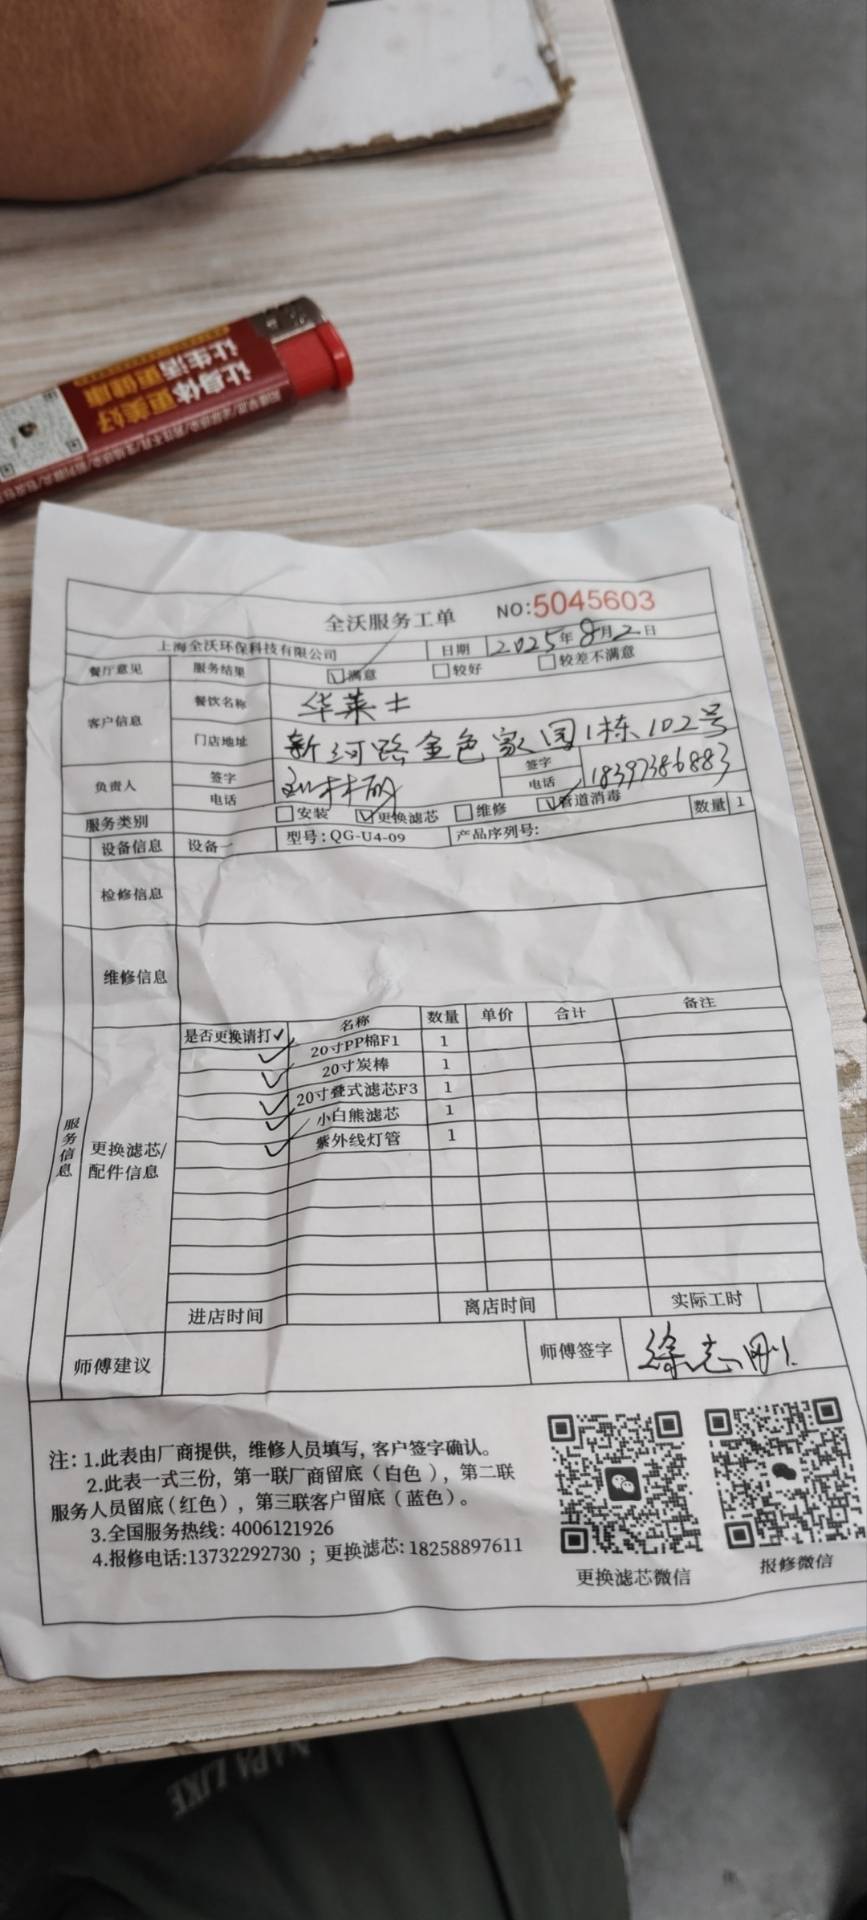 让身体更美好
让生活更健康
全沃服务工单 NO:5045603
上海全沃环保科技有限公司 日期 2025年8月2日
餐厅意见 服务结果 ☑满意 □较好 □较差不满意
客户信息 餐饮名称 华莱士
门店地址 新河路金色家园1栋102号
负责人 签字 签字
电话 电话 18397386883
服务类别 □安装 ☑更换滤芯 □维修 ☑管道消毒
设备信息 设备一 型号:QG-U4-09 产品序列号: 数量 1
检修信息
维修信息
服务信息
更换滤芯/配件信息
是否更换请打✓ 名称 数量 单价 合计 备注
✓ 20寸PP棉F1 1
✓ 20寸炭棒 1
✓ 20寸叠式滤芯F3 1
✓ 小白熊滤芯 1
✓ 紫外线灯管 1
进店时间 离店时间 实际工时
师傅建议 师傅签字 徐志刚
注:1.此表由厂商提供,维修人员填写,客户签字确认。
2.此表一式三份,第一联厂商留底(白色),第二联
服务人员留底(红色),第三联客户留底(蓝色)。
3.全国服务热线:4006121926
4.报修电话:13732292730;更换滤芯:18258897611
更换滤芯微信 报修微信
NAPA LIKE